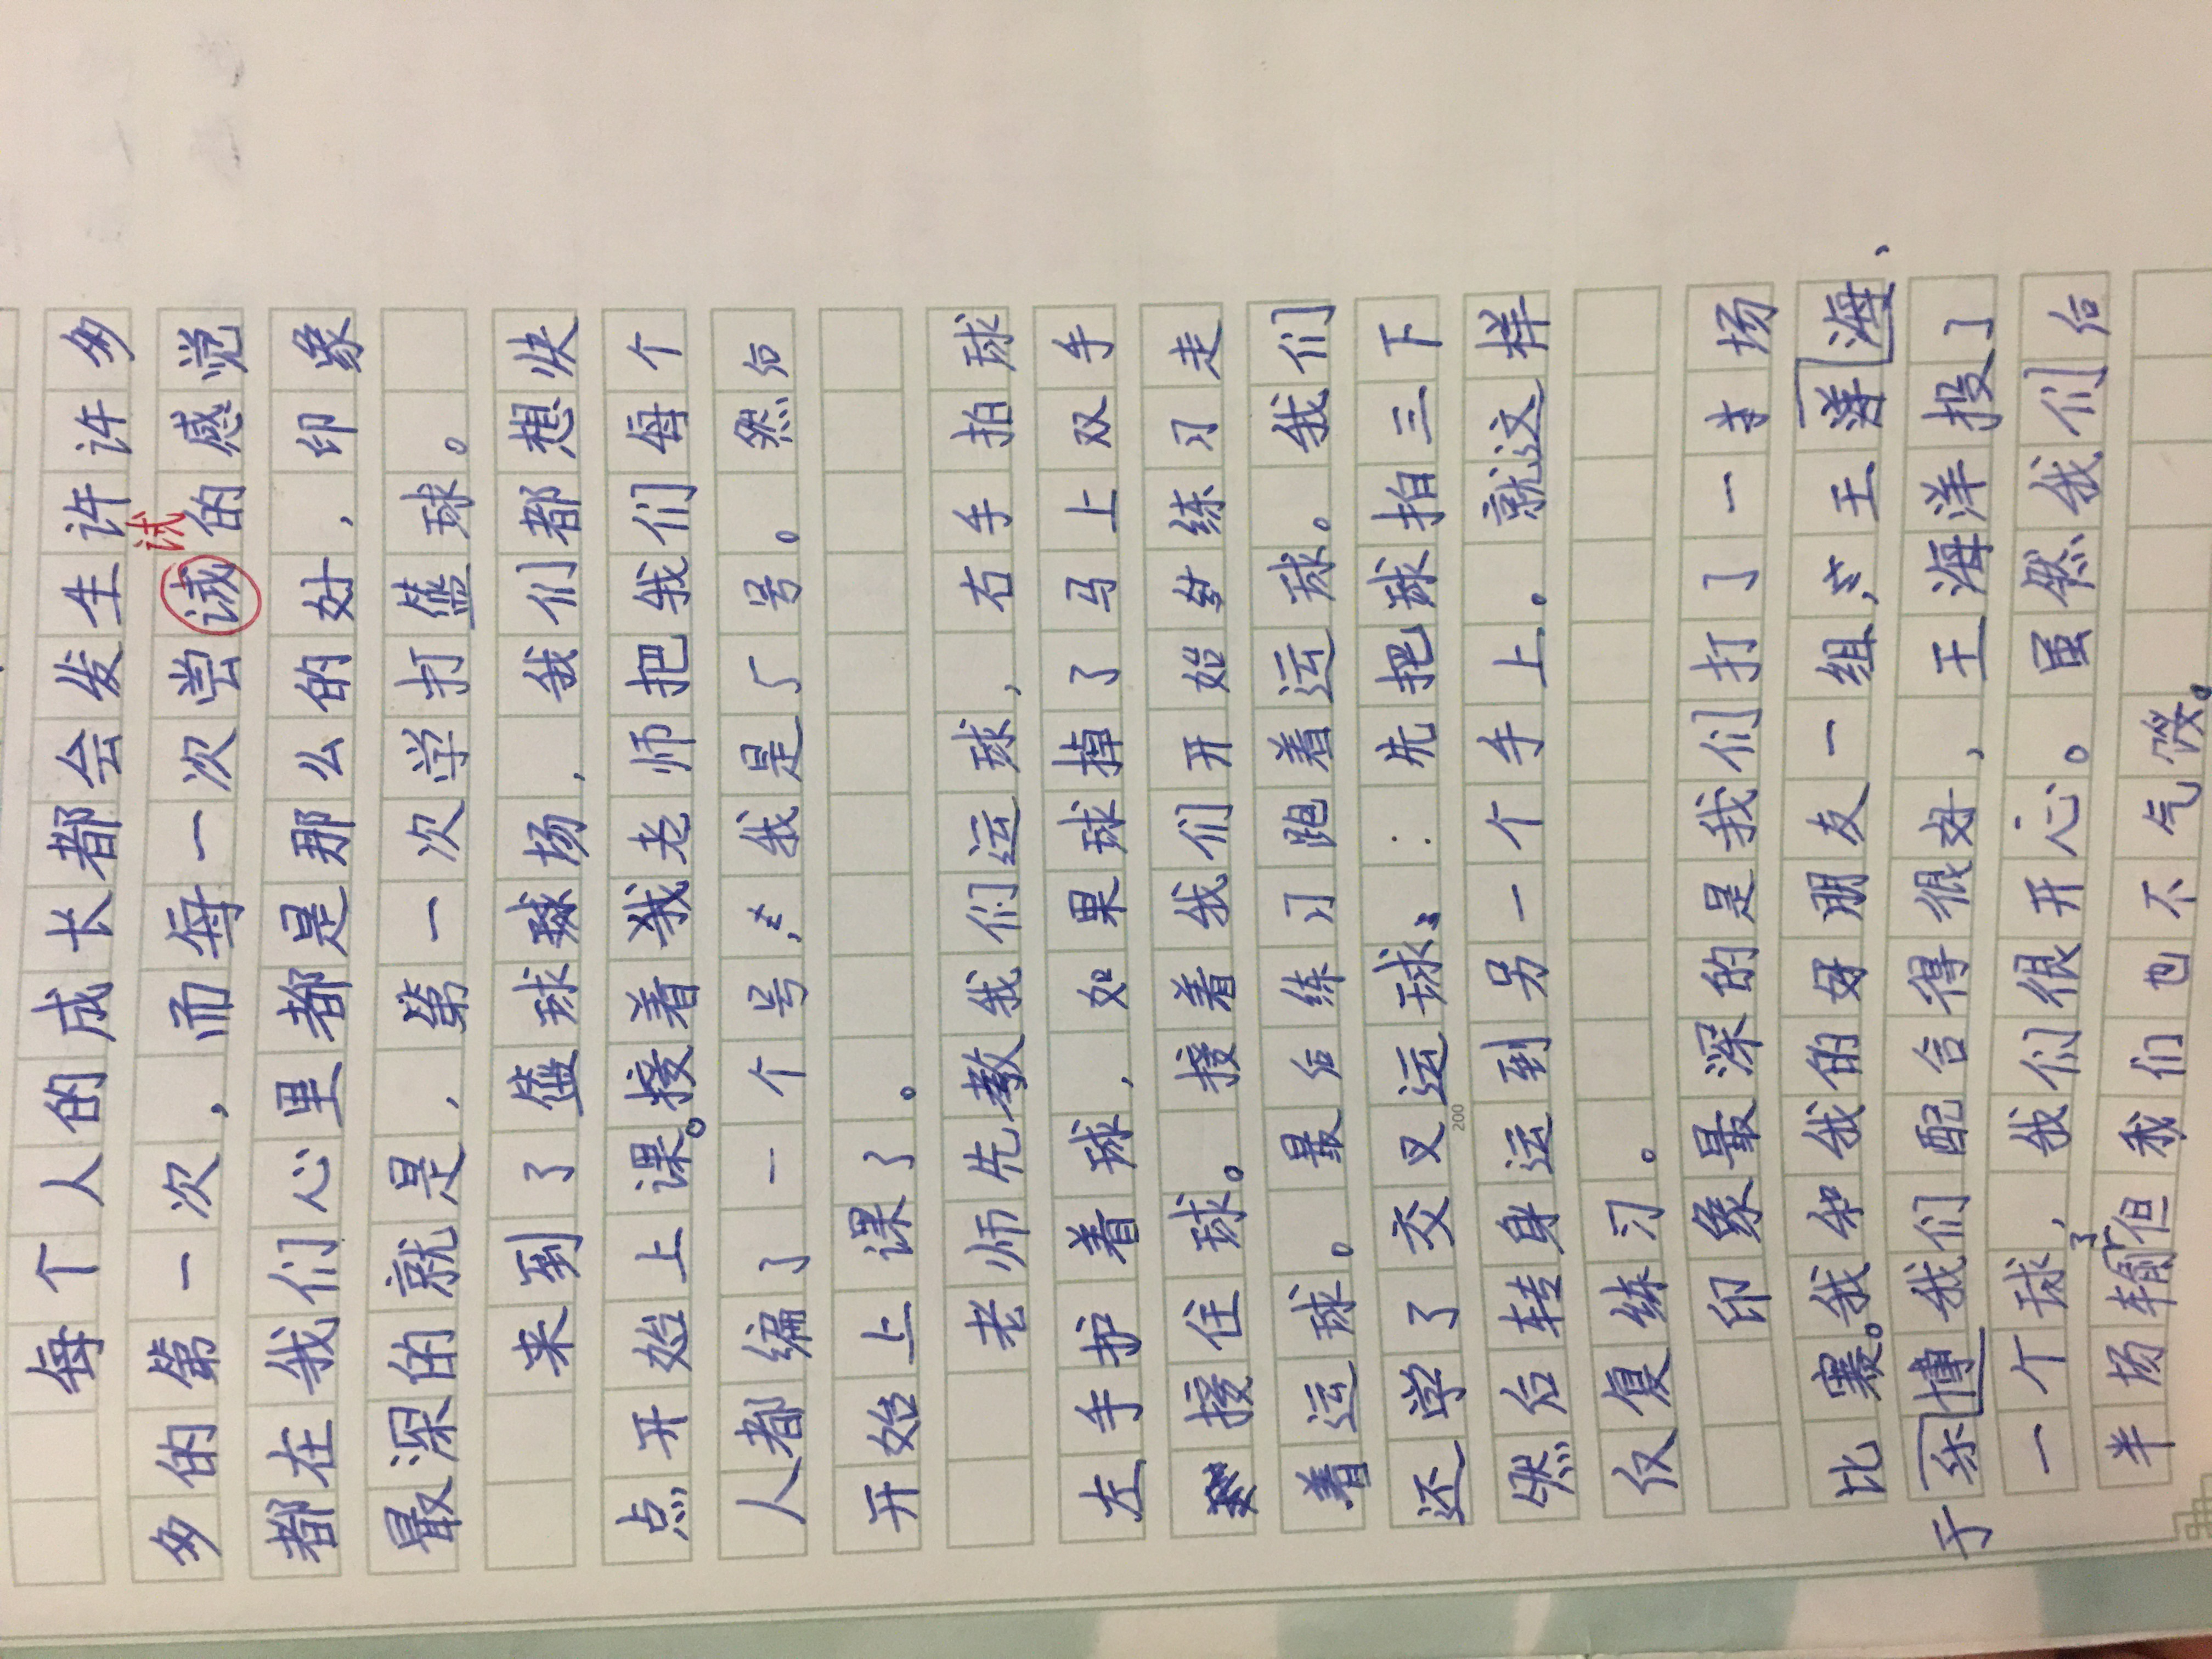 每个人的成长都会发生许许多
多的第一次，而每一次尝诫的感觉
试
都在我们心里都是那么的好，印象
最深的就是，第一次学打篮球。
来到了篮球场，我们都想快
点开始上课。接着我老师把我们每个
人都编了一个号，我是5号。然后
开始上课了。
老师先教我们运球，右手拍球
左手护着球，如果球掉了马上双手
接住球。接着我们开始练习走
着运球。最后练习跑着运球。我们
还学了交叉运球：先把球拍三下
然后转身运到另一个手上。就这样
仅复练习。
200
印象最深的是我们打了一半场
比赛。我和我的好朋友一组，王洋海、
于乐博我们配合得很好，王海洋投了
一个球，我们很开心。虽然我们后
半场输了，但我们也不气馁。